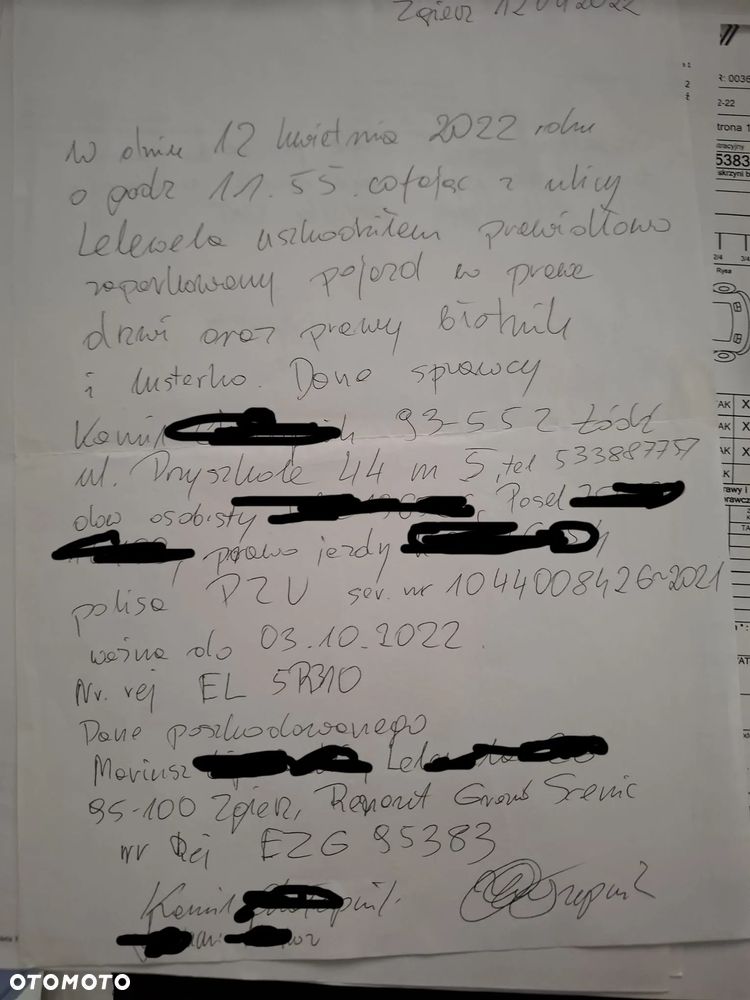 Zgierz 12 04 2022
W dniu 12 kwietnia 2022 roku
o godz 11.55. cofając z ulicy
Lelewela uszkodziłem prawidłowo
zaparkowany pojazd w prawe
drzwi oraz prawy błotnik
i lusterko. Dane sprawcy
Kamil 93-552 Łódź
ul. Przyszkole 44 m 5, tel 533887757
dow osobisty , Pesel
, prawo jazdy
polisa PZU ser. nr 1044008426-2021
ważna do 03.10.2022.
Nr. rej EL 5R310
Dane poszkodowanego
Mariusz
95-100 Zgierz, Renault Grand Scenic
nr Rej EZG 95383
Kamil
R: 0036
2-22
trona 1
5383
skrzyni b
2/4 3/4
Rysa
AK X
AK X
AK X
OTOMOTO